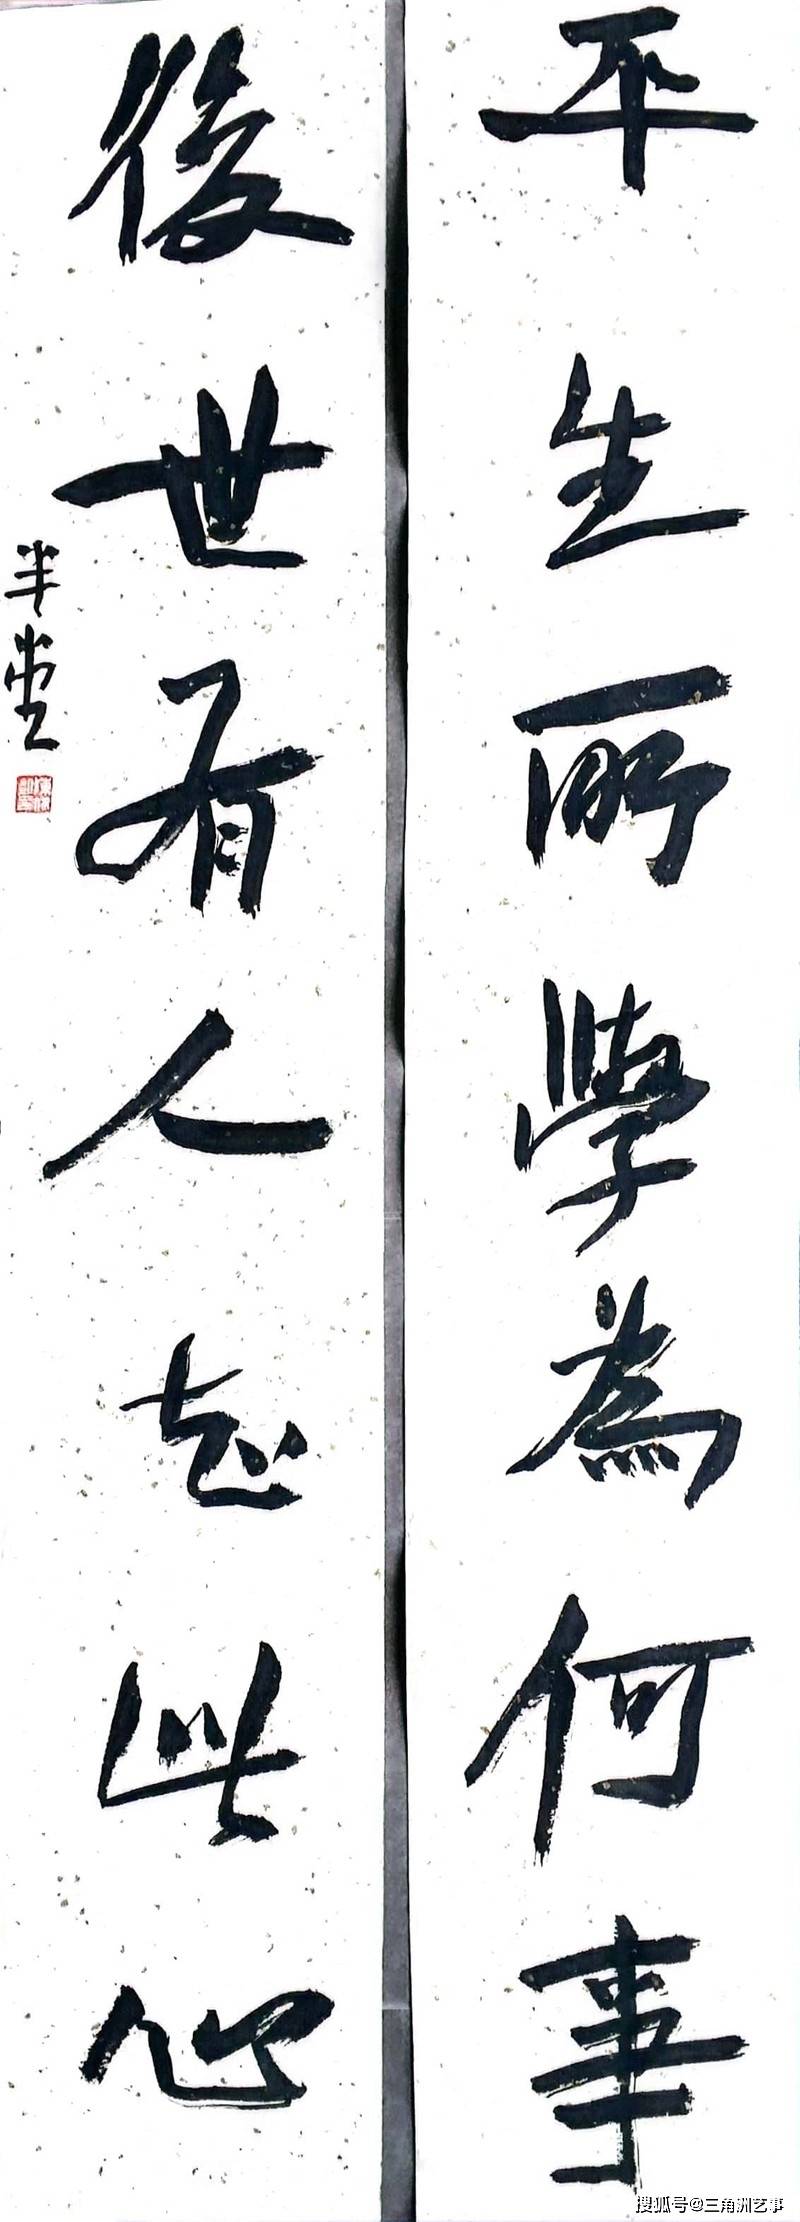 平生所學為何事
後世有人知此心
半堂
搜狐号@三角洲艺事